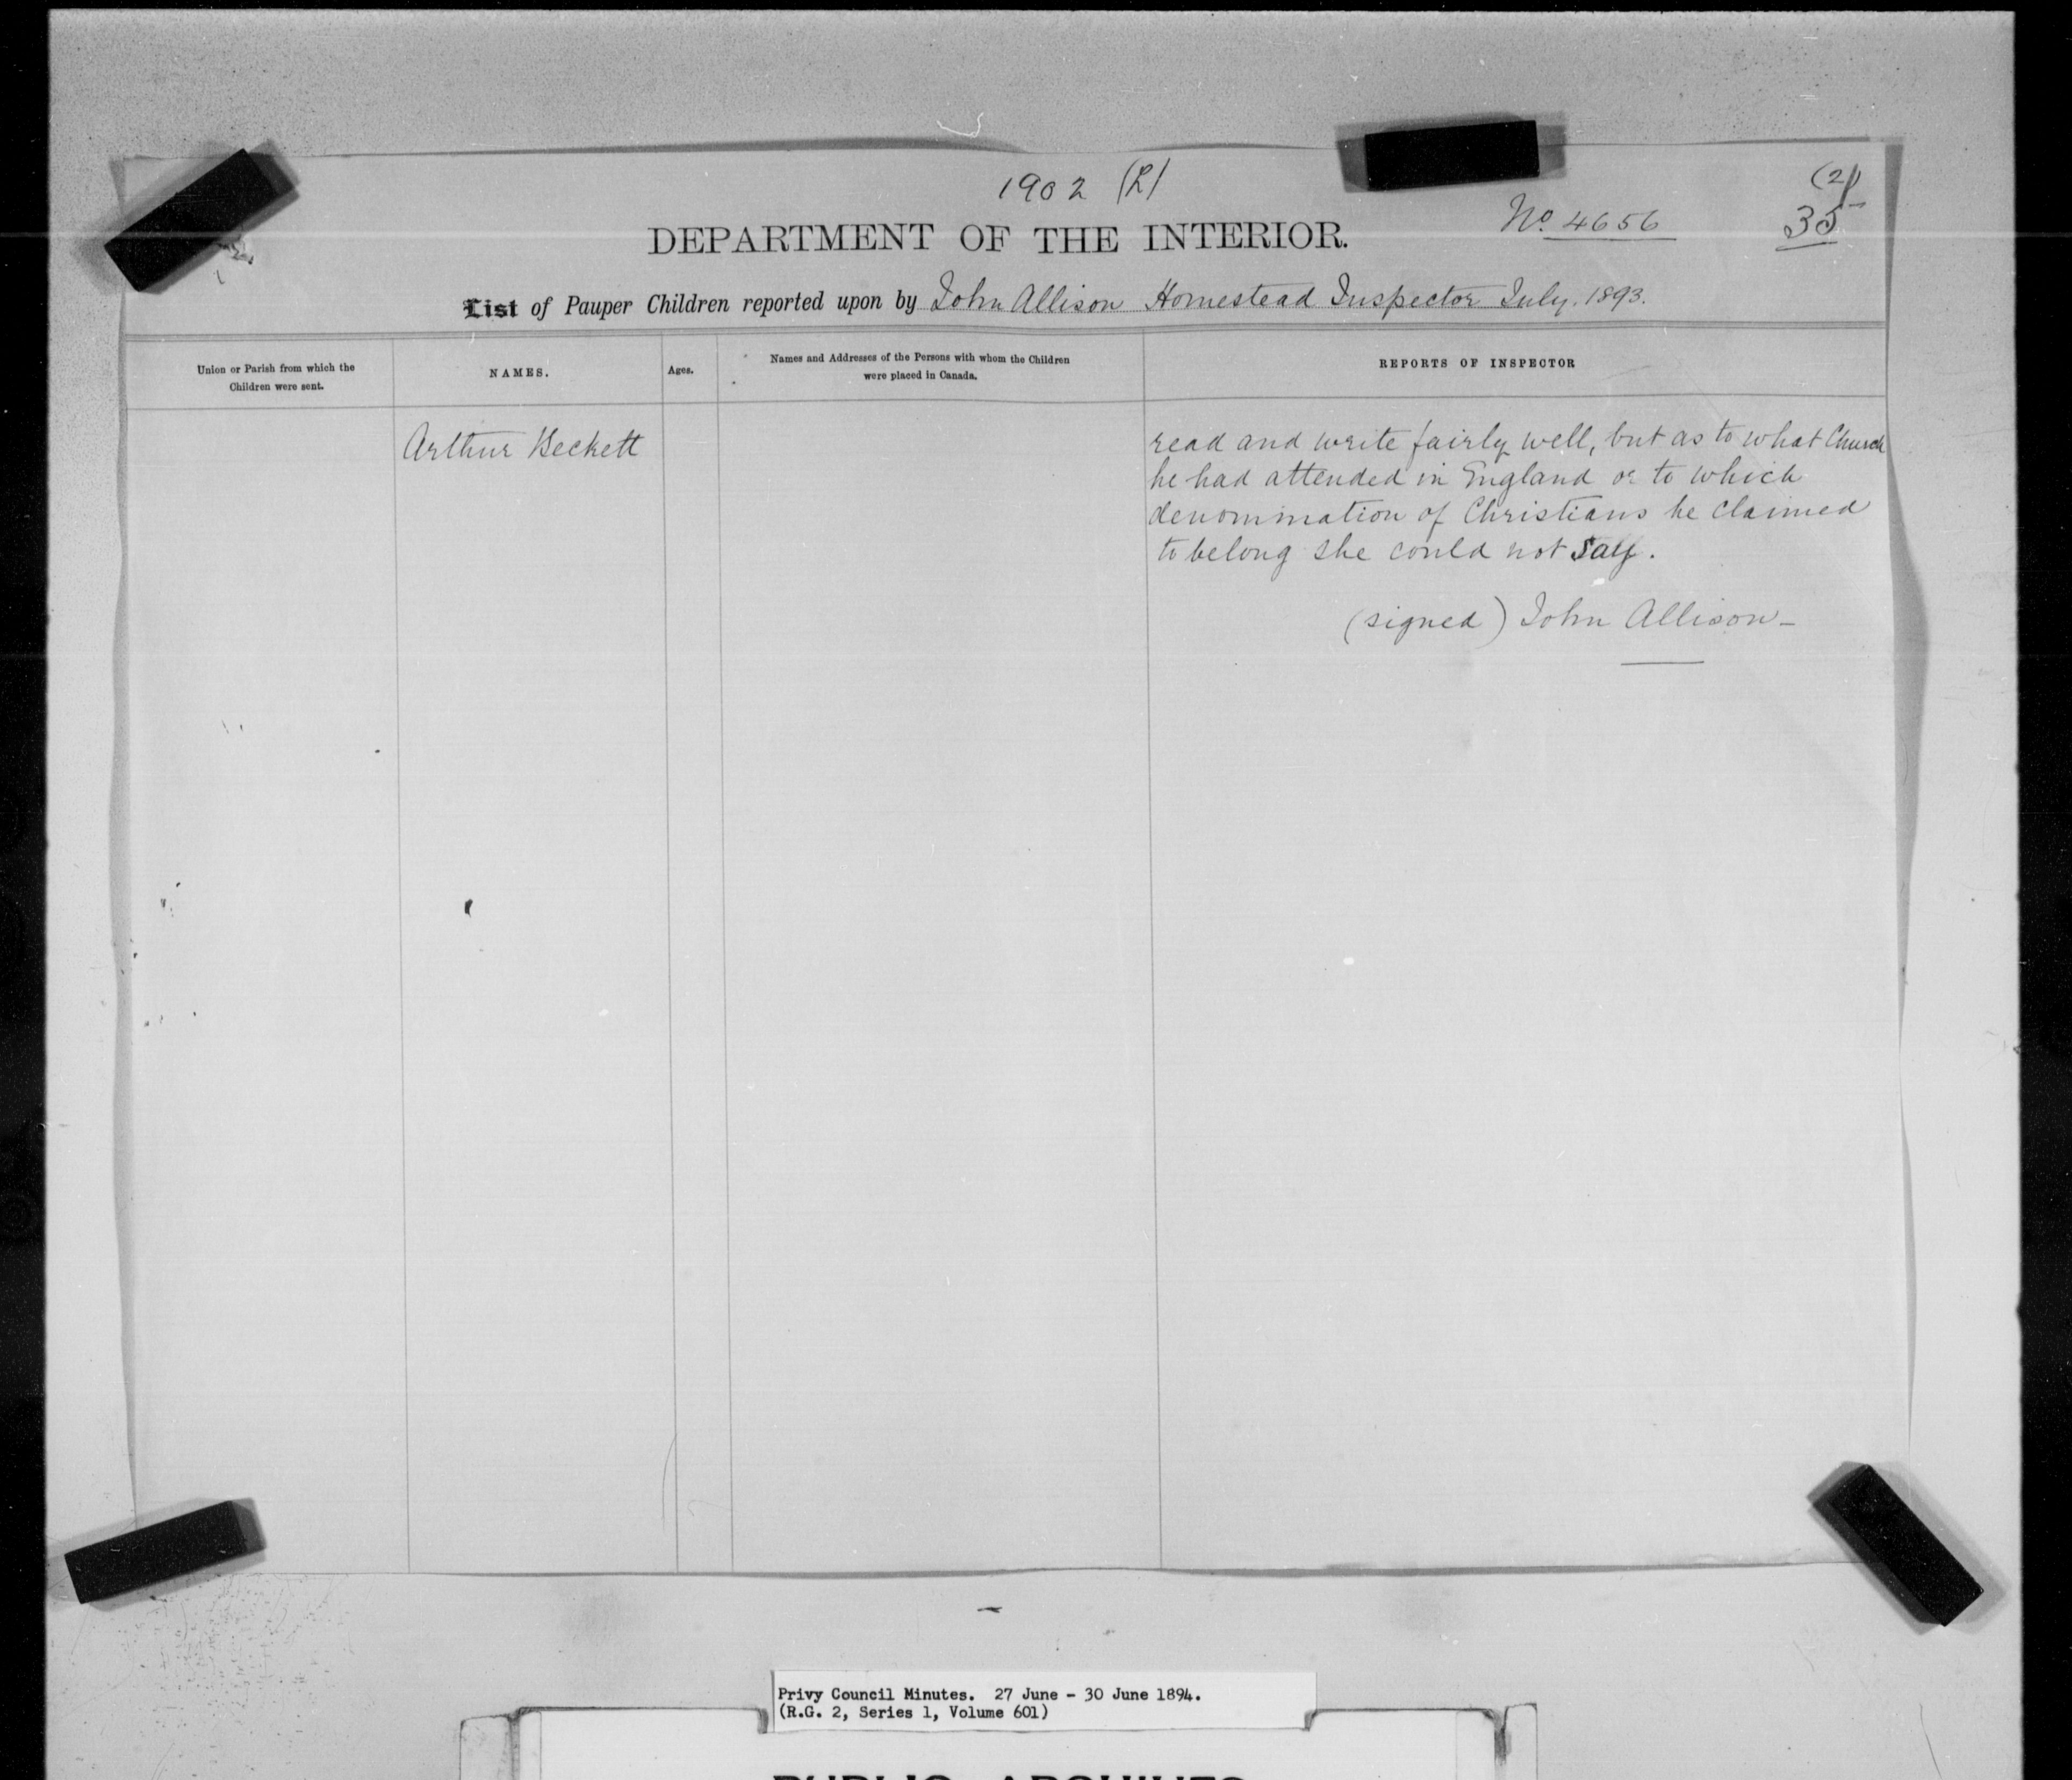 1902 (R)
(2)
No. 4656
35
DEPARTMENT OF THE INTERIOR.
List of Pauper Children reported upon by John Allison Homestead Inspector July. 1893.
Union or Parish from which the
Children were sent.
NAMES.
Ages.
Names and Addresses of the Persons with whom the Children
were placed in Canada.
REPORTS OF INSPECTOR
Arthur Beckett
read and write fairly well, but as to what Church
he had attended in England or to which
denomination of Christians he claimed
to belong she could not say.
(signed) John Allison-
Privy Council Minutes. 27 June - 30 June 1894.
(R.G. 2, Series 1, Volume 601)
PUBLIC ARCHIVES